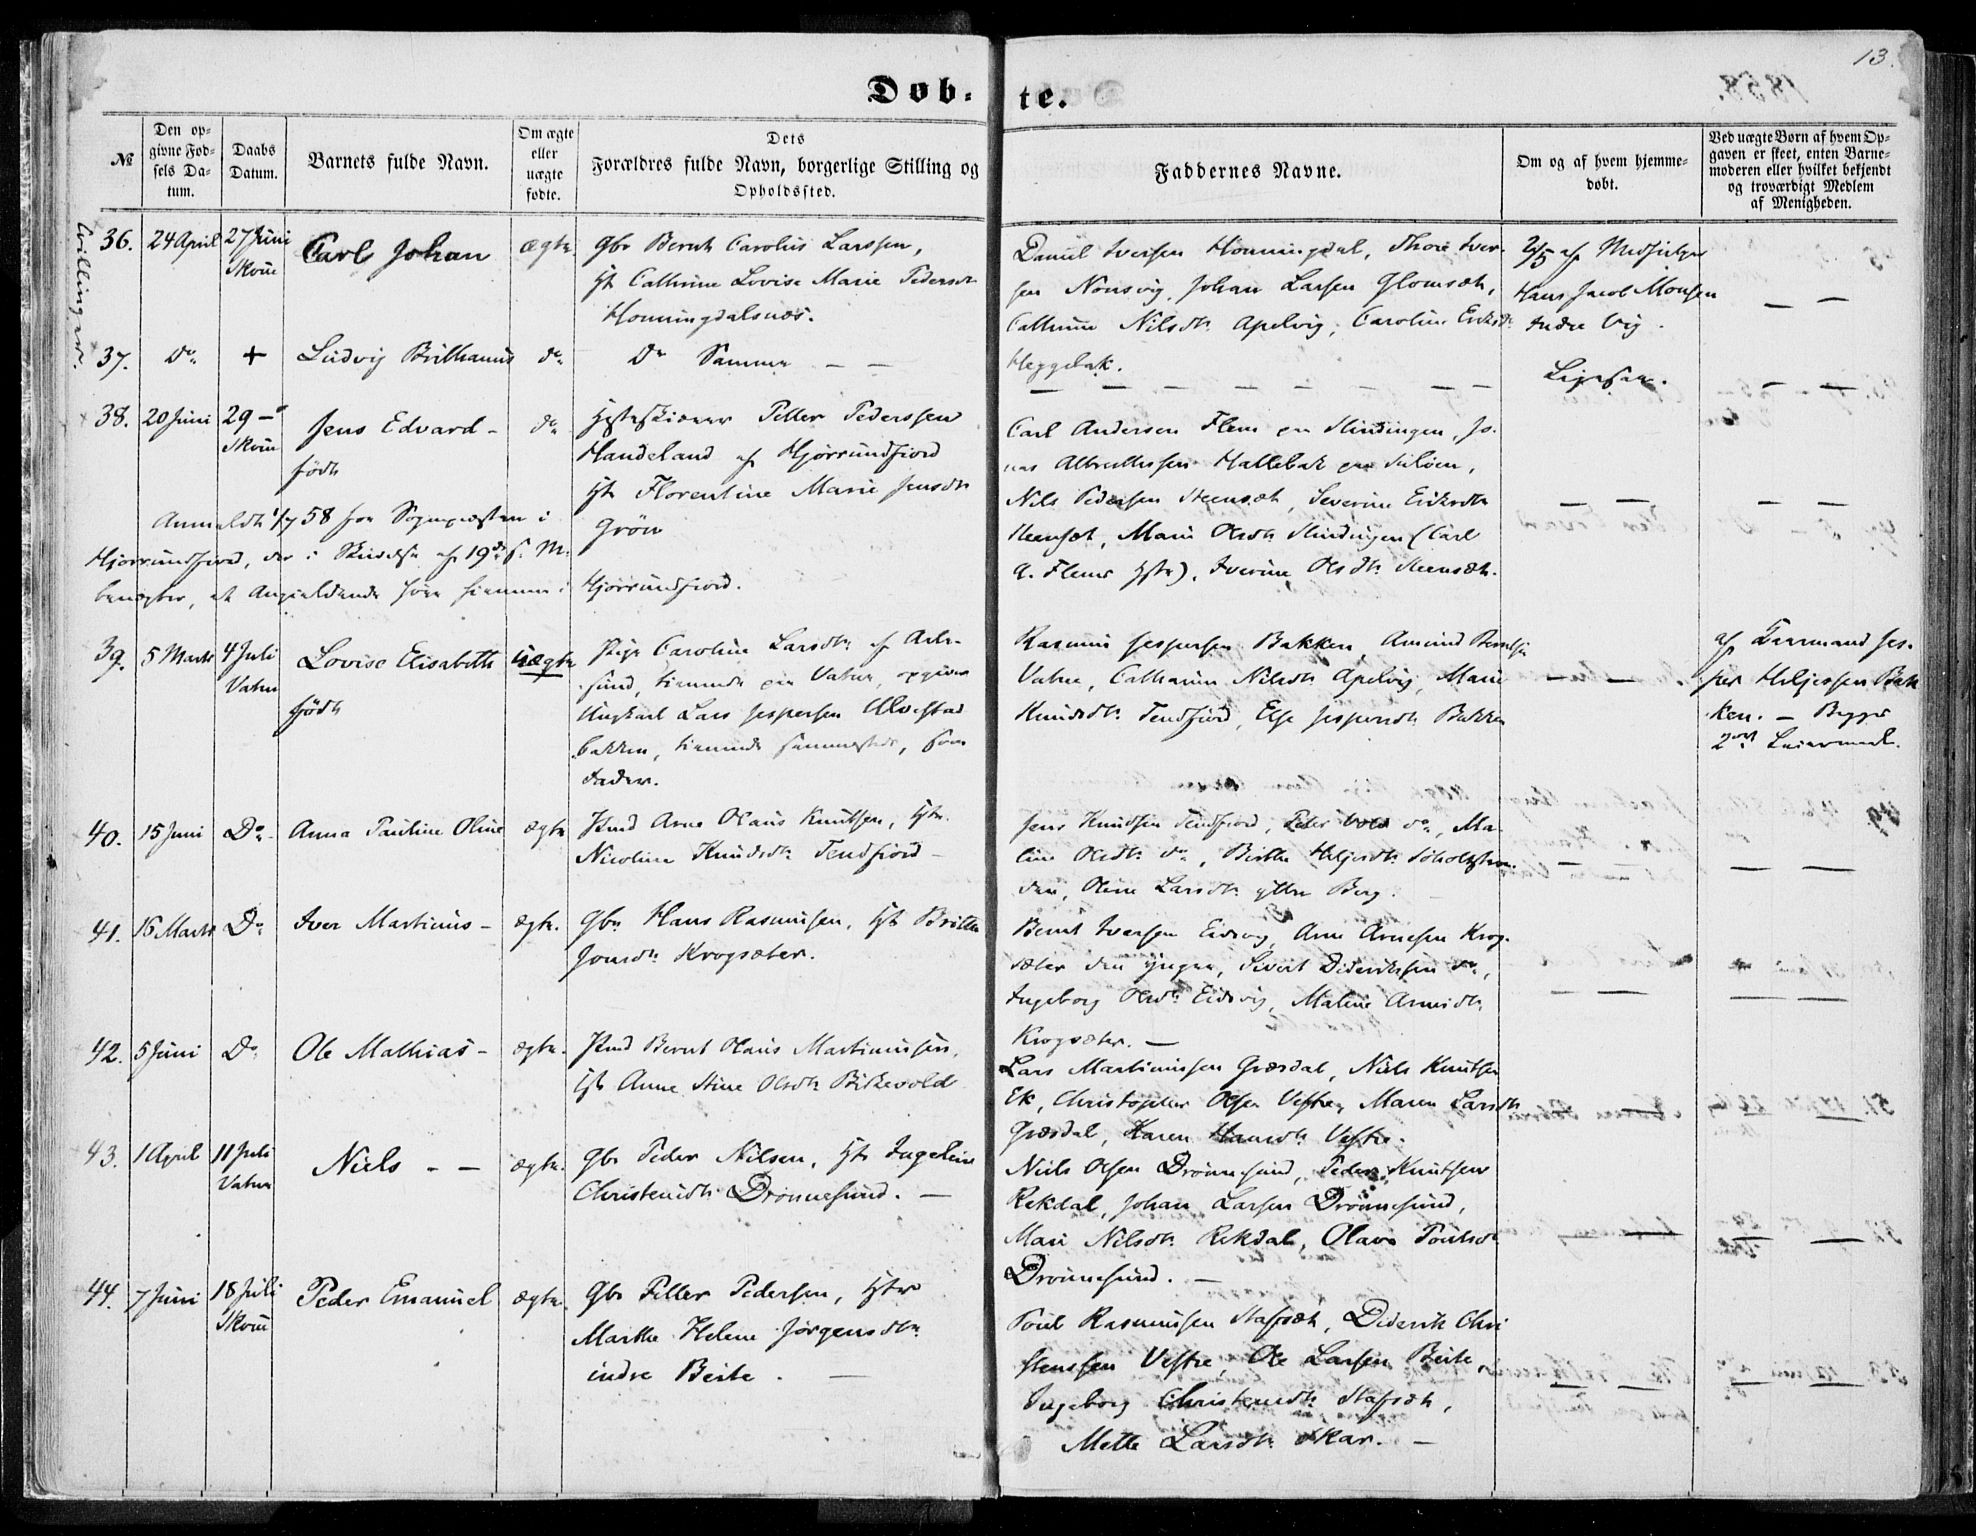 13.
Døb-
te.
№
Den op-
givne Fød-
sels Da-
tum.
Daabs
Datum.
Barnets fulde Navn.
Om ægte
eller
uægte
fødte.
Dets
Forældres fulde Navn, borgerlige Stilling og
Opholdssted.
Faddernes Navne.
Om og af hvem hjemme-
døbt.
Ved uægte Børn af hvem Op-
gaven er skeet, enten Barne-
moderen eller hvilket bekjendt
og troværdigt Medlem
af Menigheden.
Tvillinger.
36.
24 April
27 Juni
Skoue
Carl Johan
ægte
Gbr Bernt Carolus Larssen,
Hst Cathrine Lovise Marie Pedersdt
Honningdalsnæs.
Daniel Iversen Honningdal, Thore Iver-
sen Nonsvig, Johan Larsen Glomsæt,
Cathrine Nilsdt Apelvig, Caroline Eriksdt
Heggebak.
2/5 af
Hans Jacob Monsen
Indre Vig.
— —
37.
Do
+
Ludvig Brithanus
do
Do Samme — —
— — — — — — — —
— —
38.
20 Juni
29 —
Skoue
Jens Edvard —
født
do
Petter Pederssen
Handeland af Hjørrundfiord
Hst Florentine Marie Jensdt
Grön
Hjörrundfiord.
Anmeldt 1/7 58 for Sognepræsten i
Hjørrundfiord, der i Skrivelse af 19de s. M.
benægter, at Angjældende höre hiemme i
Carl Andersen Flem paa Mindingen, Jo-
nas Albrethssen Hallebak paa
Nils Pedersen Steensæt, Severine Eriksdt
Steensæt, Marie Olsdt Mindingen (Carl
A. Flems Hstr), Iverine Olsdt Steensæt.
— —
— —
39.
5 Marts
4 Juli
Vatne
Lovise Elisabeth
født
uægte
Pige Caroline Larsdt af Aale-
sund, tienende paa Vatne, opgiver
Ungkarl Lars Jespersen Alvestad
bakken, tienende sammesteds, som
Fader.
Rasmus Jespersen Bakken, Amund Berntsen
Vatne, Catharine Nilsdt Apelvig, Marie
Knudsdt Tendfiord, Else Jespersdt Bakken
— —
af Kaarmand Jes-
per Heljessen Bak
ken. — Begges
2det Leiermaal.
40.
15 Juni
Do
Anna Pauline Oline
ægte
Hmd Arne Olaus Knutsen, Hst.
Nicoline Knudsdt Tendfiord —
Jens Knudsen Tendfiord, Peder Vold do, Ma-
line Olsdt do, Birthe Heljesdt Søholtstran-
den, Oline Larsdt yttre Berg.
— —
— —
41.
16 Marts
Do
Iver Martinus —
ægte.
Gbr Hans Rasmusen, Hst Brithe
Jonsdt Krogsæter.
Bernt Iversen Eidsvig, Arne Arnesen Krog-
sæter den yngre, Sivert Dideriksen do,
Ingeborg Olsdt Eidsvig, Maline Arnesdt
Krogsæter. —
— —
— —
42.
5 Juni
Do
Ole Mathias —
ægte.
Hmd Bernt Olaus Martinussen,
Hst Anne Stine Olsdt Birkevold
Lars Martinussen Græsdal, Niels Knutsen
Ek, Christopher Olsen Vestre, Maren Larsdt
Græsdal, Karen Hansdt Vestre.
43.
1 April
11 Juli
Vatne
Niels — —
ægte.
Gbr Peder Nilsen, Hst Ingeline
Christensdt Drönnesund. —
Niels Olsen Drönnesund, Peder Knutsen
Rekdal, Johan Larsen Drönnesund,
Mari Nilsdt Rekdal, Olava Poulsdt
Drönnesund. —
44.
7 Juni
18 Juli
Skoue
Peder Emanuel
ægte.
Gbr Petter Pedersen, Hstr
Marthe Helene Jörgensdtr
indre Beite. —
Poul Rasmussen Stafsæt, Diderik Chri
stenssen Vestre, Ole Larsen Beite,
Ingeborg Christensdt Stafsæt,
Mette Larsdt Skar. —
— —
— —